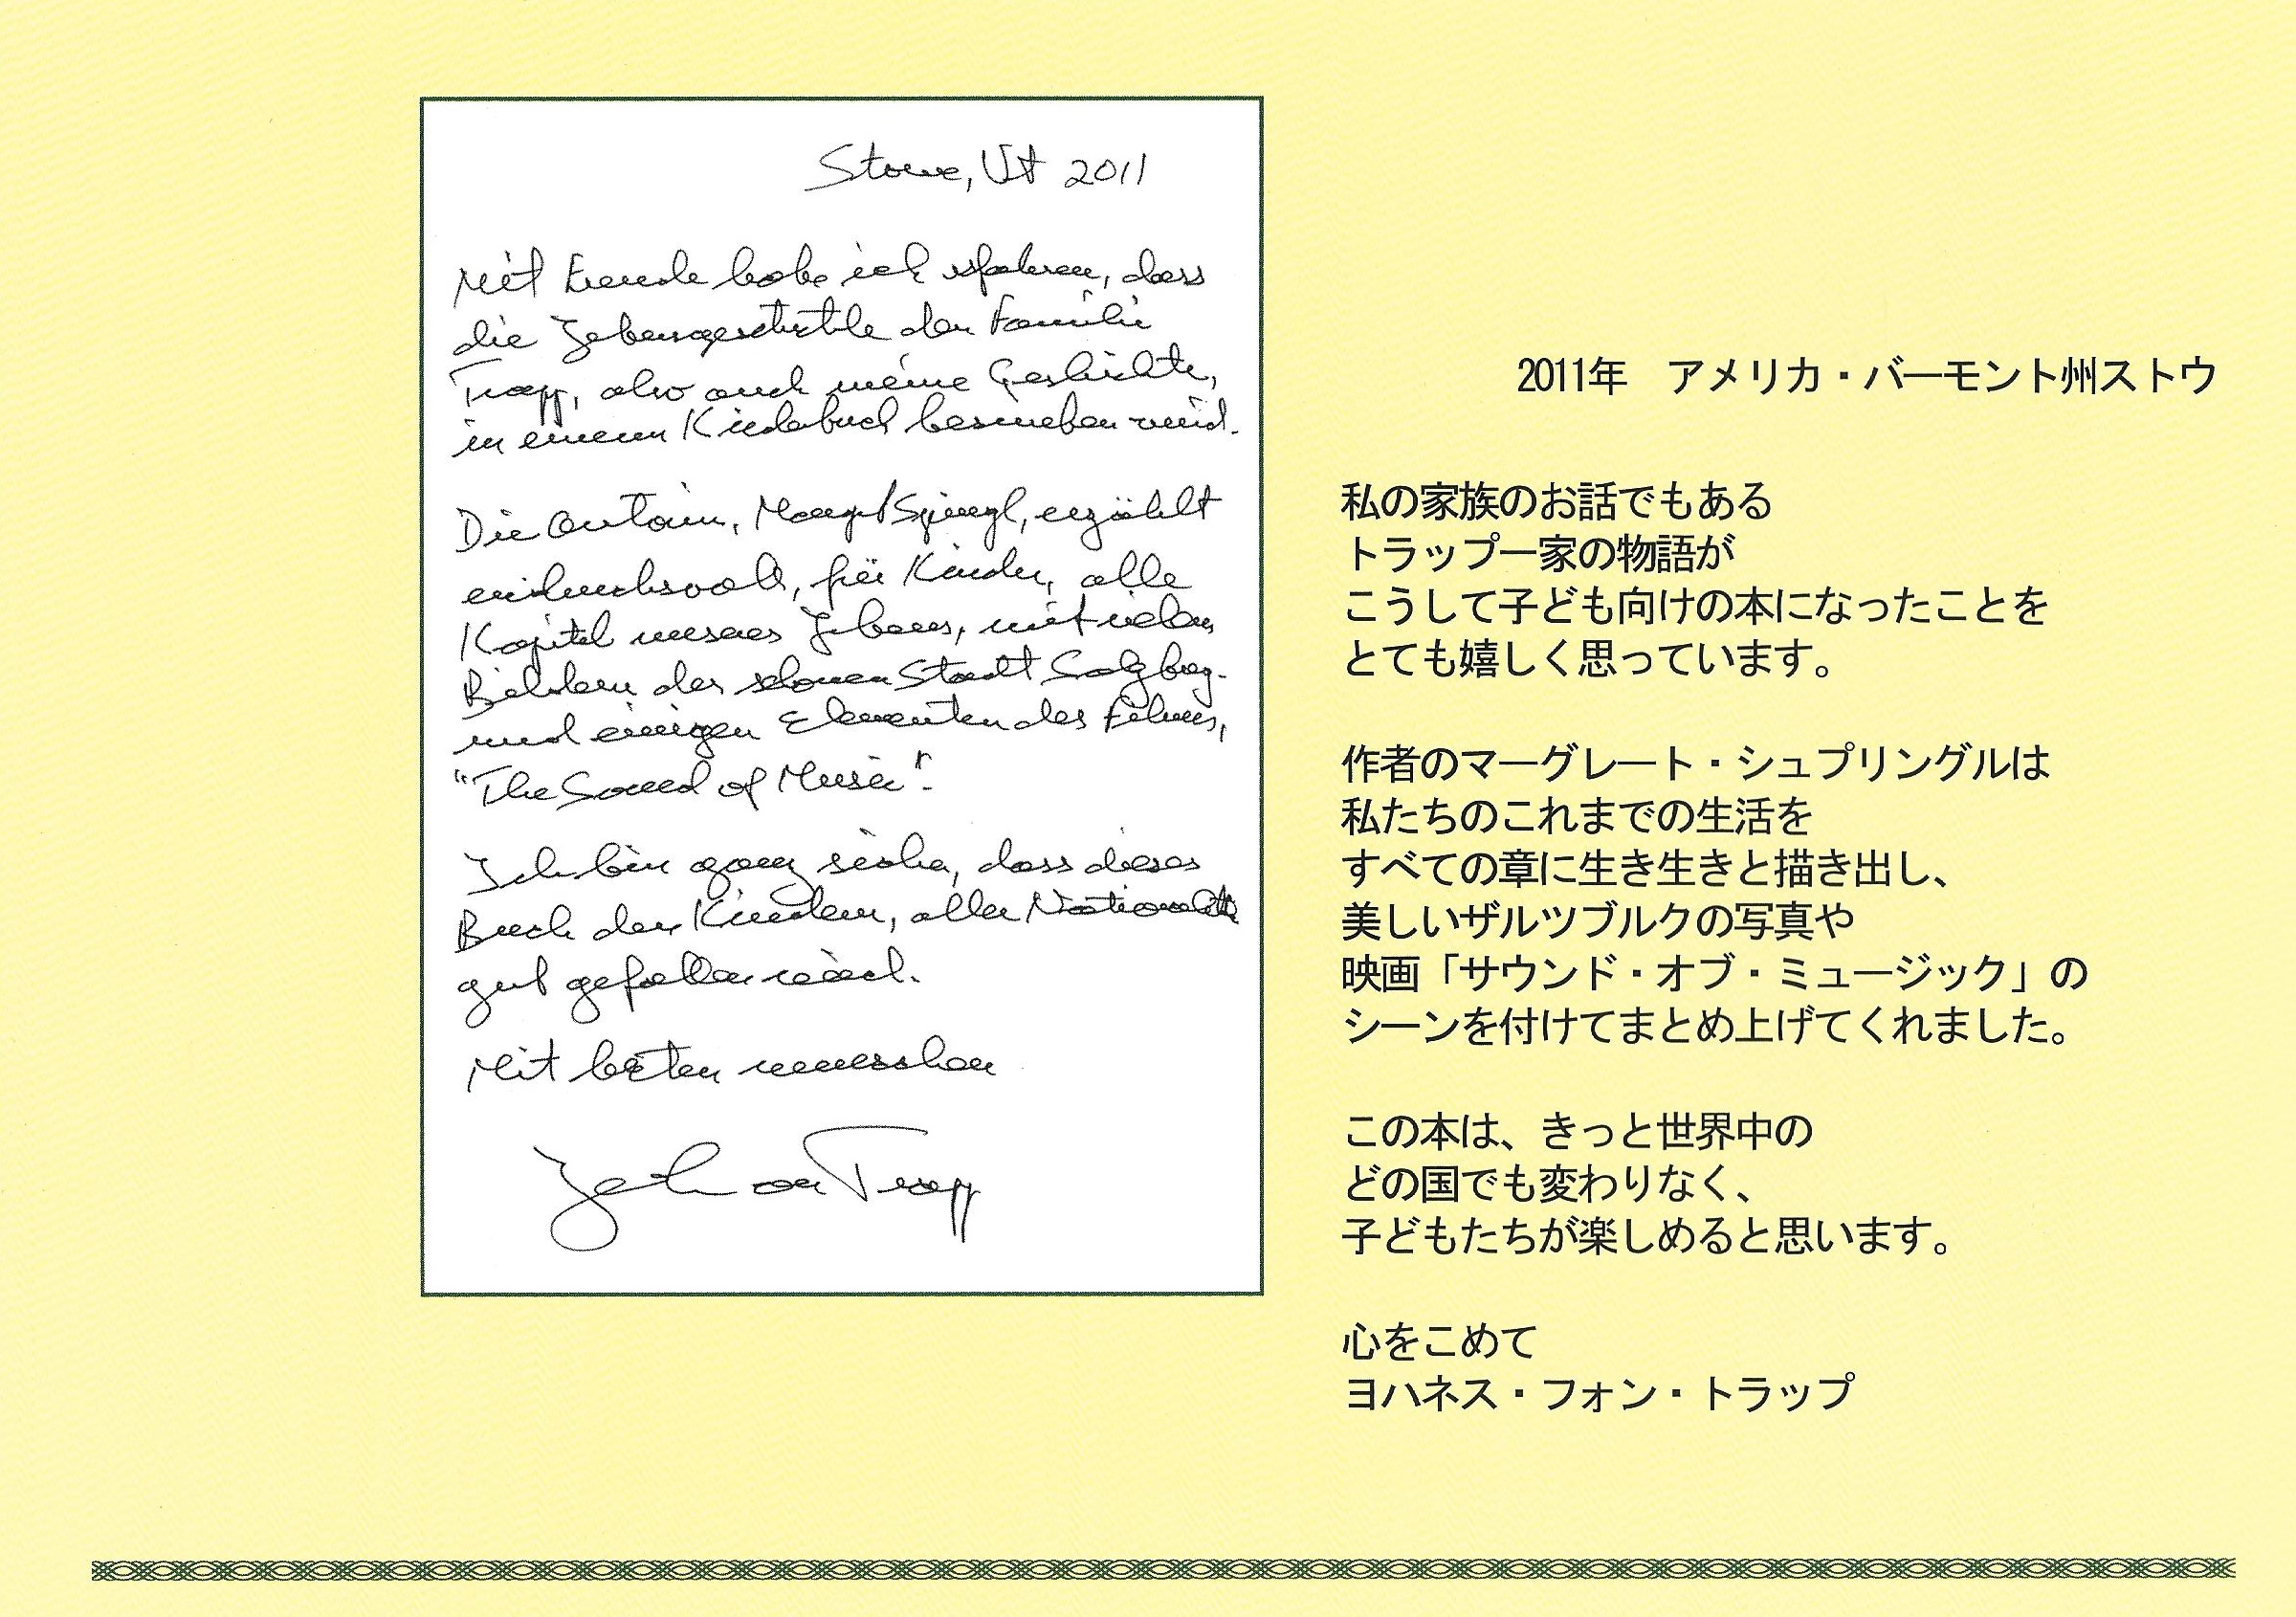 Stowe, Vt 2011
Mit Freude habe ich erfahren, dass
die Lebensgeschichte der Familie
Trapp, also auch meine Geschichte,
in einem Kinderbuch beschrieben wird.
Die Autorin, erzählt
eindrucksvoll, für Kinder, alle
Kapitel unseres Lebens, mit vielen
Bildern der schönen Stadt Salzburg.
und einigen Elementen des Filmes,
"The Sound of Music".
Ich bin ganz sicher, dass dieses
Buch den Kindern, aller
gut gefallen wird.
Mit besten
von Trapp
2011年　アメリカ・バーモント州ストウ
私の家族のお話でもある
トラップ一家の物語が
こうして子ども向けの本になったことを
とても嬉しく思っています。
作者のマーグレート・シュプリングルは
私たちのこれまでの生活を
すべての章に生き生きと描き出し、
美しいザルツブルクの写真や
映画「サウンド・オブ・ミュージック」の
シーンを付けてまとめ上げてくれました。
この本は、きっと世界中の
どの国でも変わりなく、
子どもたちが楽しめると思います。
心をこめて
ヨハネス・フォン・トラップ